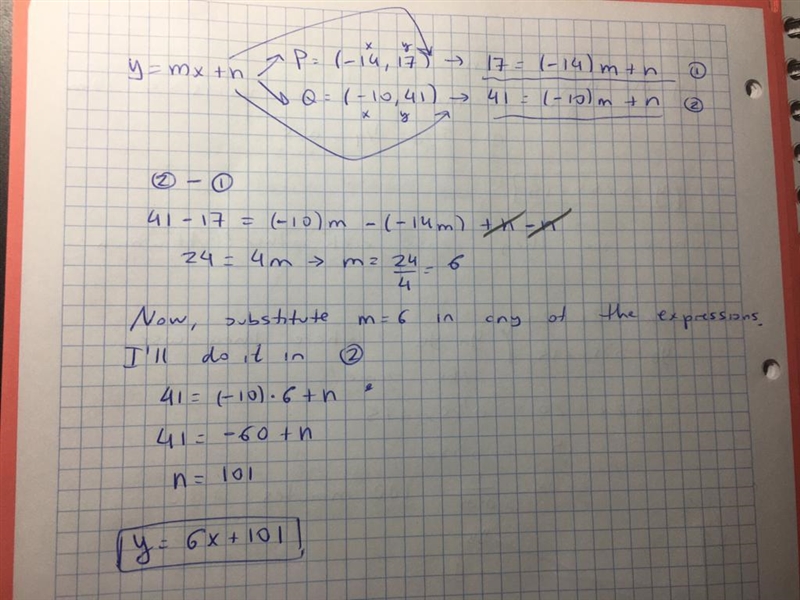 x y
y = mx + n P = (-14, 17) → 17 = (-14)m + n ①
Q = (-10, 41) → 41 = (-10)m + n ②
x y
② - ①
41 - 17 = (-10)m - (-14m) + n - n
24 = 4m → m = 24/4 = 6
Now, substitute m=6 in any of the expressions.
I'll do it in ②
41 = (-10)·6 + n
41 = -60 + n
n = 101
y = 6x + 101